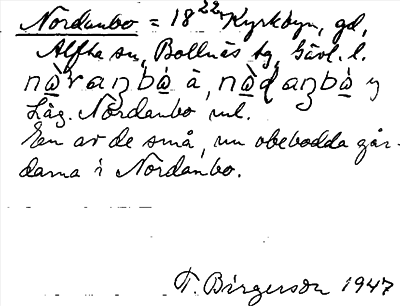 Nordanbo = 18²² Kyrkbyn, gd,
Alfta sn, Bollnäs tg, Gävl. l.
å, y
Låg. Nordanbo ml.
En av de små, nu obebodda går-
darna i Nordanbo.
T. Birgerson 1947